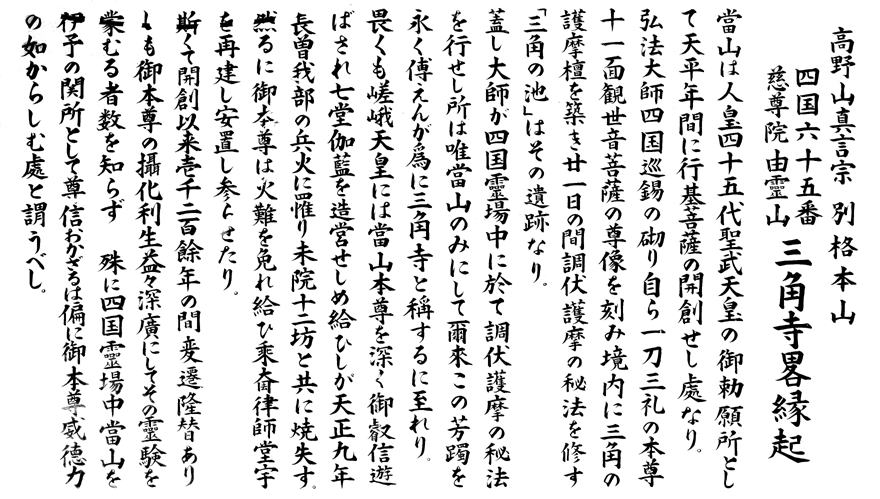 高野山真言宗 別格本山
四国六十五番
慈尊院由霊山
三角寺畧縁起
當山は人皇四十五代聖武天皇の御勅願所とし
て天平年間に行基菩薩の開創せし處なり。
弘法大師四国巡錫の砌り自ら一刀三礼の本尊
十一面観世音菩薩の尊像を刻み境内に三角の
護摩檀を築き廿一日の間調伏護摩の秘法を修す
「三角の池」はその遺跡なり。
蓋し大師が四国霊場中に於て調伏護摩の秘法
を行せし所は唯當山のみにして爾來この芳躅を
永く傳えんが為に三角寺と稱するに至れり。
畏くも嵯峨天皇には當山本尊を深く御叡信遊
ばされ七堂伽藍を造営せしめ給ひしが天正九年
長曽我部の兵火に罹り末院十二坊と共に焼失す。
然るに御本尊は火難を免れ給ひ乗奝律師堂宇
を再建し安置し参らせたり。
斯くて開創以来壱千二百餘年の間変遷隆替あり
しも御本尊の攝化利生益々深廣にしてその霊験を
蒙むる者数を知らず 殊に四国霊場中當山を
伊予の関所として尊信おかざるは偏に御本尊威徳力
の如からしむ處と謂うべし。